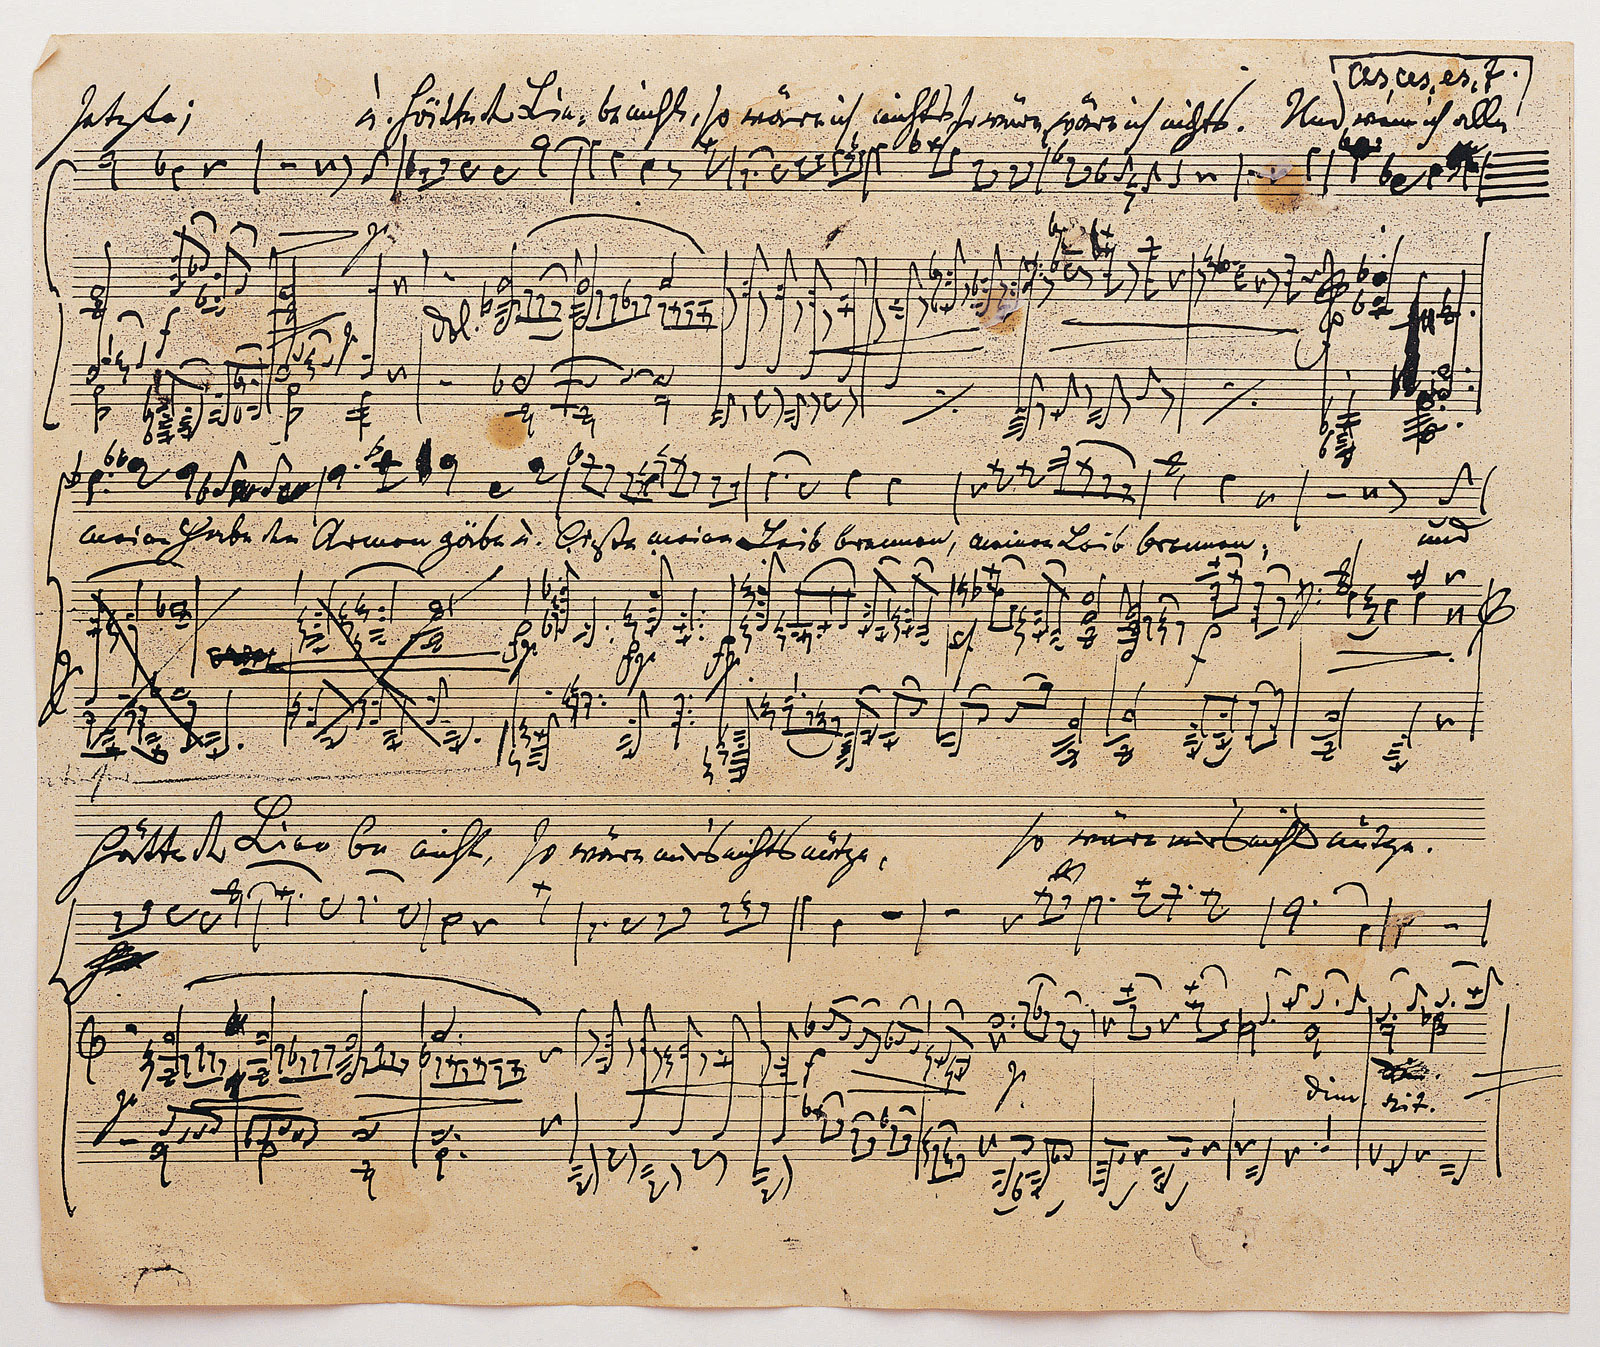 ces, ces, es, f.
setzte; u. hätte der Liebe nicht, so wäre ich nichts, so wäre, wäre ich nichts. Und wenn ich alle
p
dol.
meine Habe den Armen gäbe u. ließe meinen Leib brennen, meinen Leib brennen; und
p
fp fp fp
sf f
hätte der Liebe nicht, so wäre mir's nichts nütze, so wäre mir's nichts nütze.
p f p
dim. rit.